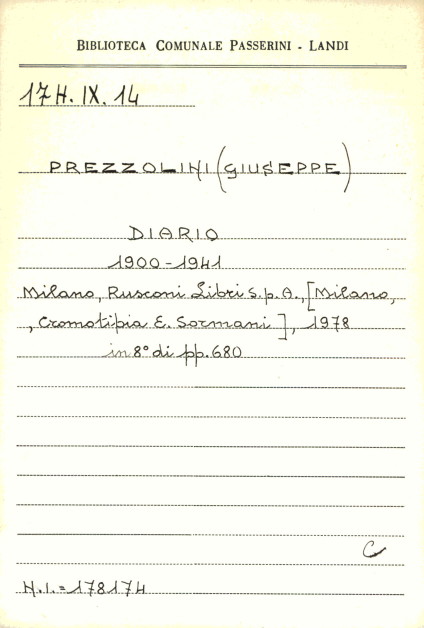 BIBLIOTECA COMUNALE PASSERINI - LANDI
17 H. IX. 14
PREZZOLINI (GIUSEPPE)
DIARIO
1900-1941
Milano, Rusconi Libri S.p.A., [Milano,
, Cromotipia E. Sormani], 1978
in 8° di pp. 680
C
N.I. = 178174